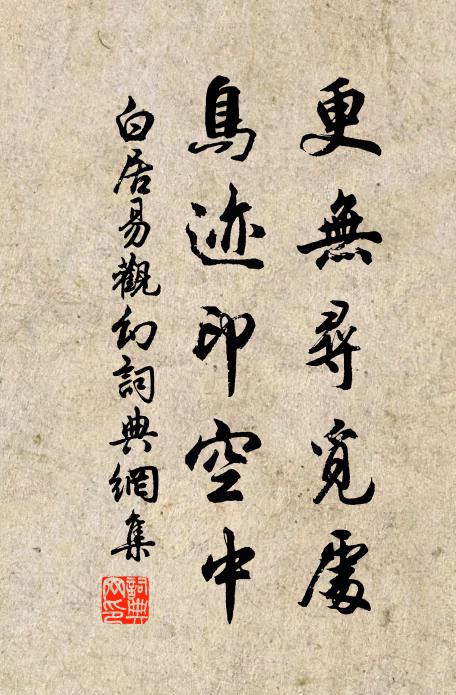 更無尋覓處
鳥迹印空中
白居易觀幻詞典網集
詞典
网印